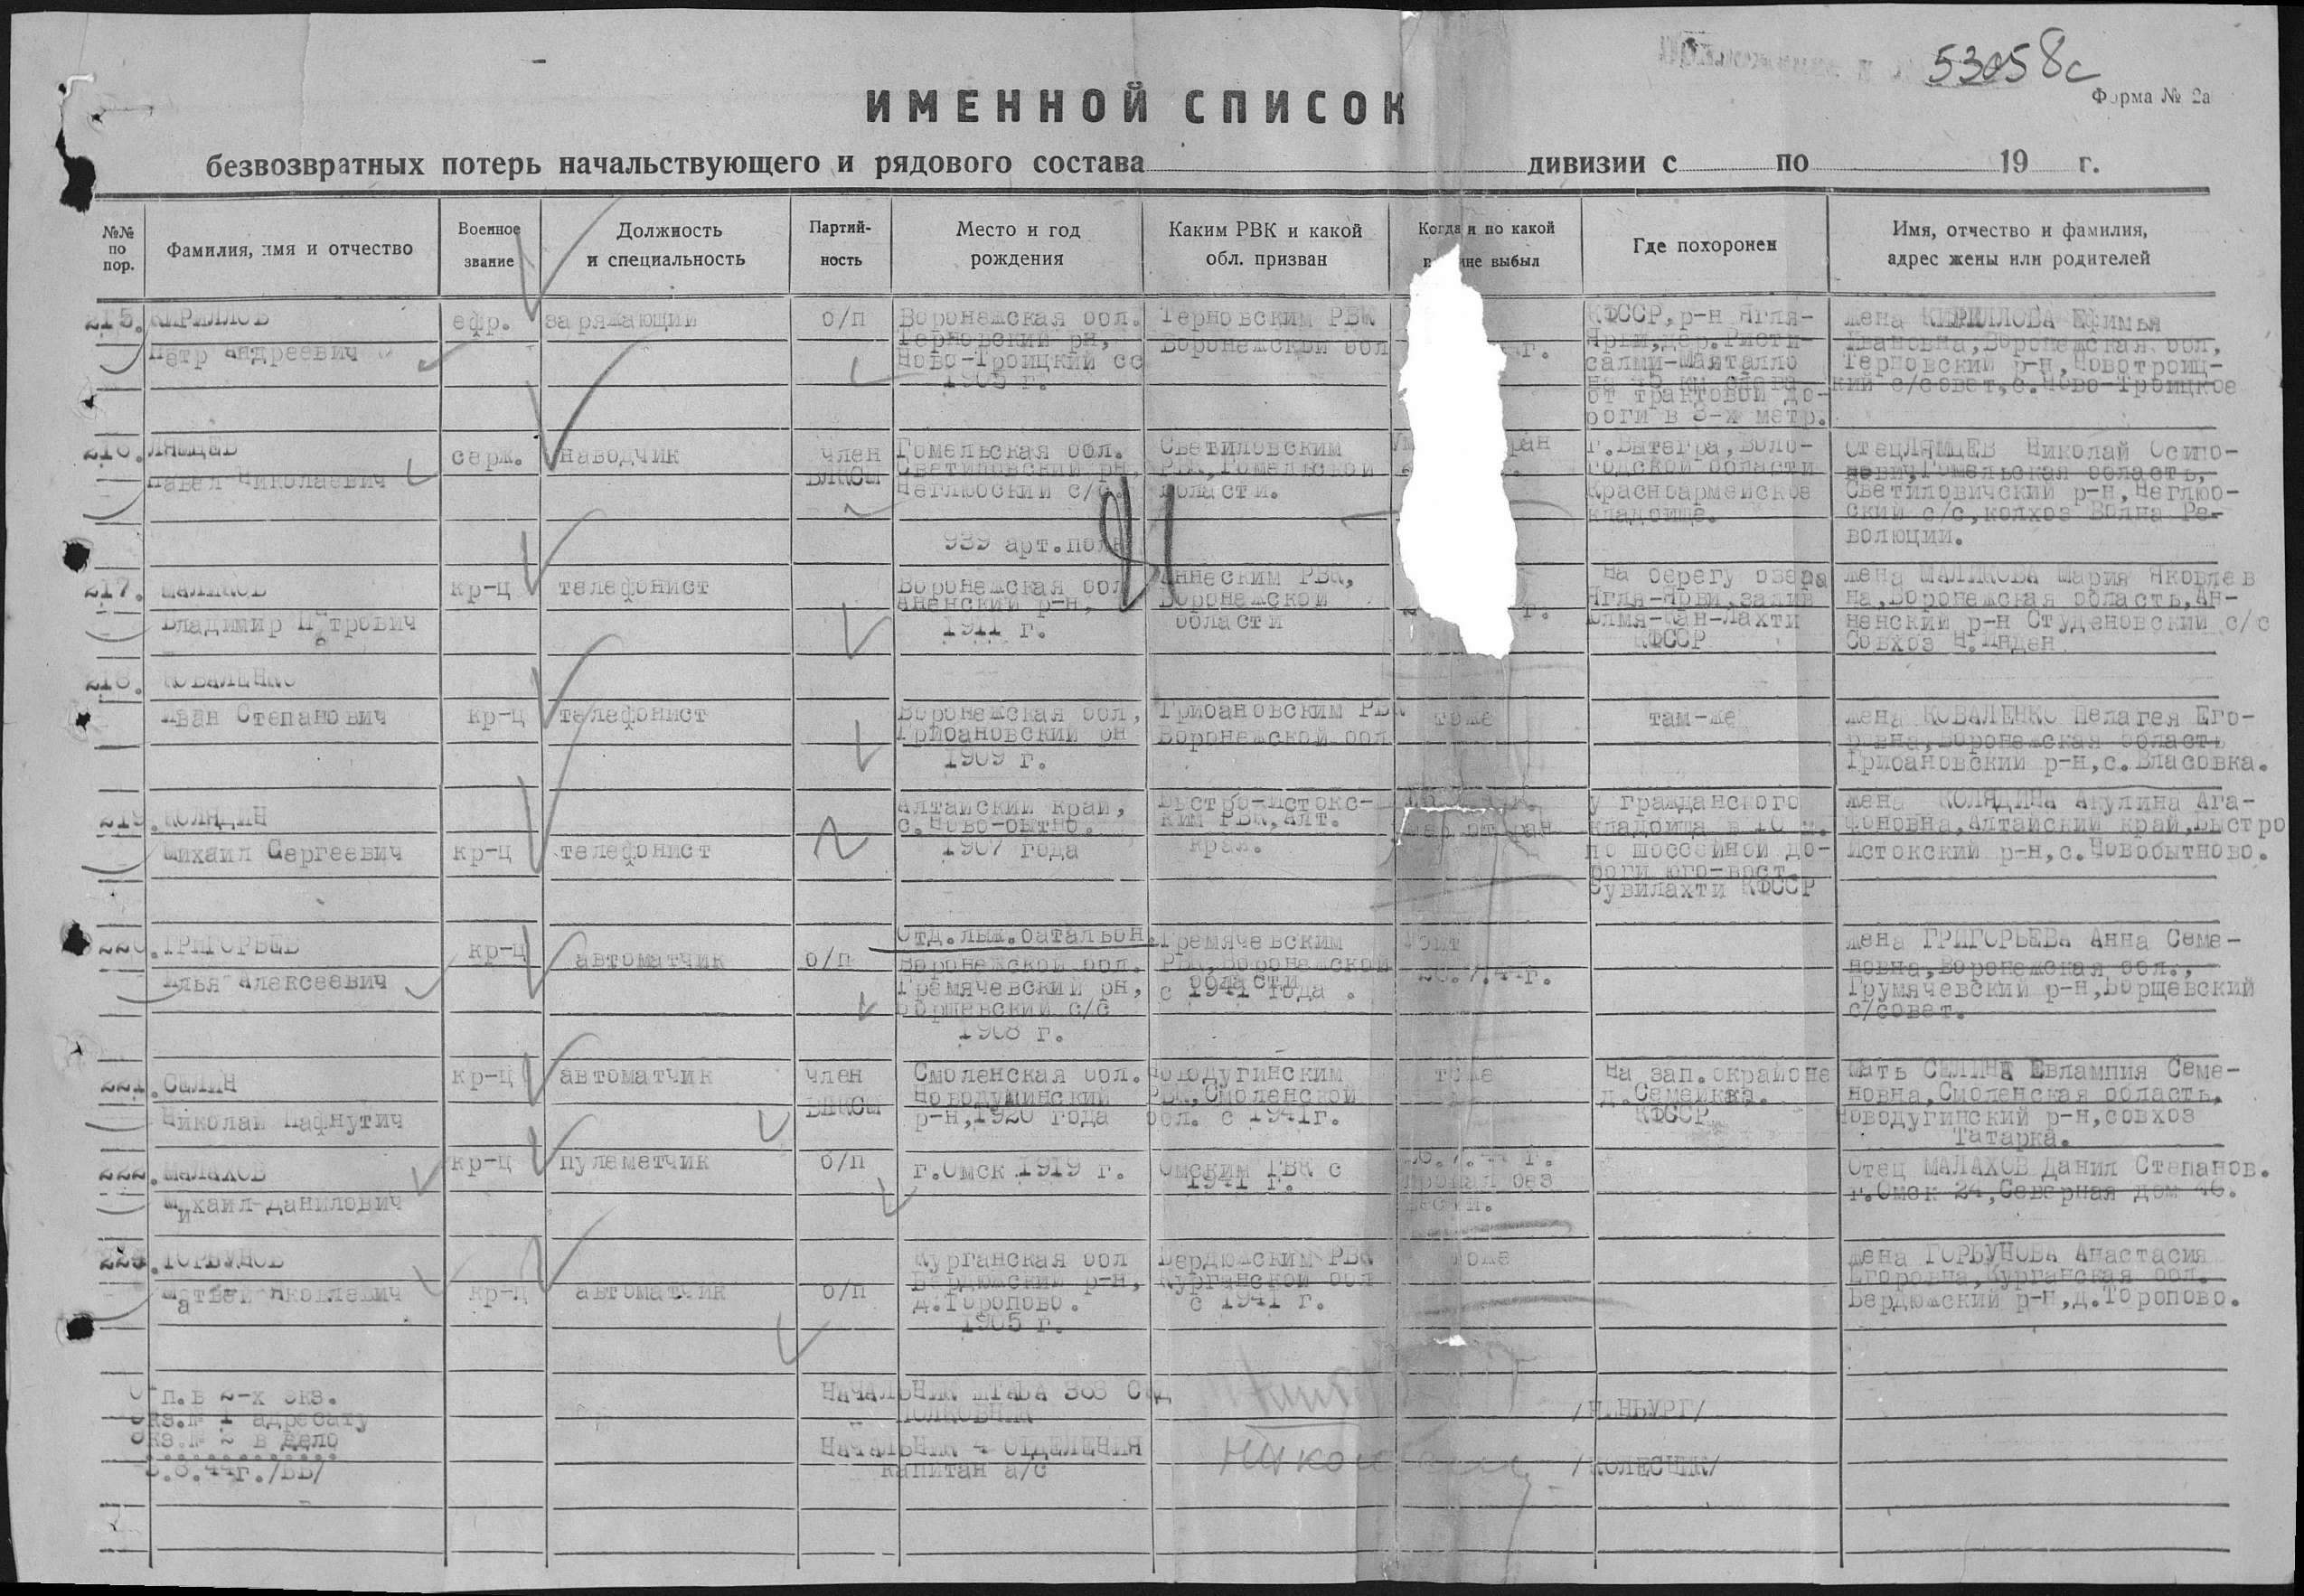 53058с
Форма № 2а
ИМЕННОЙ СПИСОК
безвозвратных потерь начальствующего и рядового состава дивизии с по 19 г.
№№ по пор.
Фамилия, имя и отчество
Военное звание
Должность и специальность
Партий-ность
Место и год рождения
Каким РВК и какой обл. призван
Когда и по какой выбыл
Где похоронен
Имя, отчество и фамилия, адрес жены или родителей
215. КИРИЛЛОВ
Петр Андреевич
ефр.
заряжающий
о/п
Воронежская обл.
Терновский рн,
Ново-Троицкий сс
1905 г.
Терновским РВК
Воронежской обл
г.
КФССР, р-н Ягля-
Ярви, дер. Ристи-
салми-Маяталло
на 45 км слева
от трактовой до-
роги в 3-х метр.
жена КИРИЛЛОВА Ефимья
Ивановна, Воронежская обл,
Терновский р-н, Новотроиц-
кий с/совет, с. Ново-Троицкое
216. ЛЯМЦЕВ
Павел Николаевич
серж.
наводчик
член
ВЛКСМ
Гомельская обл.
Светиловский рн,
Неглюбский с/с.
Светиловским
РВК, Гомельской
области.
ран
г. Вытегра, Воло-
годской области
Красноармейское
кладбище.
отец ЛЯМЦЕВ Николай Осипо-
вич, Гомельская область,
Светиловичский р-н, Неглюб-
ский с/с, колхоз Волна Ре-
волюции.
939 арт. полк
21
217. МАЛИКОВ
Владимир Петрович
кр-ц
телефонист
Воронежская обл
Аненский р-н,
1911 г.
Аннеским РВК,
Воронежской
области
г.
На берегу озера
Ягля-Ярви, залив
КФССР
жена МАЛИКОВА Мария Яковлев
на, Воронежская область, Ан-
ненский р-н Студеновский с/с
Совхоз Н. Инден
218. КОВАЛЕНКО
Иван Степанович
кр-ц
телефонист
Воронежская обл,
Грибановский рн
1909 г.
Грибановским РВК
Воронежской обл
тоже
там-же
жена КОВАЛЕНКО Пелагея Его-
ровна, Воронежская область
Грибановский р-н, с. Власовка.
219. КОЛЯДИН
Михаил Сергеевич
кр-ц
телефонист
Алтайский край,
с. Ново-бытно.
1907 года
Быстро-Истокс-
ким РВК, Алт.
края.
умер от ран
у гражданского
кладбища в 10 м.
по шоссейной до-
роги юго-вост.
Сувилахти КФССР
жена КОЛЯДИНА Акулина Ага-
фоновна, Алтайский край, Быстро
Истокский р-н, с. Новобытново.
Отд. лыж. батальон.
220. ГРИГОРЬЕВ
Илья Алексеевич
кр-ц
автоматчик
о/п
Воронежской обл.
Гремячевский рн,
Борщевский с/с
1908 г.
Гремячевским
РВК, Воронежской
области
с 1941 года.
26.7.44г.
жена ГРИГОРЬЕВА Анна Семе-
новна, Воронежская обл.,
Грумячевский р-н, Борщевский
с/совет.
221. СЕЛИН
Николай Пафнутич
кр-ц
автоматчик
член
ВЛКСМ
Смоленская обл.
Новодушинский
р-н, 1920 года
Новодугинским
РВК, Смоленской
обл. с 1941г.
тоже
На зап. окрайоне
д. Семейкка.
КФССР
мать СЕЛИНА Евлампия Семе-
новна, Смоленская область,
Новодугинский р-н, совхоз
Татарка.
222. МАЛАХОВ
Михаил Данилович
кр-ц
пулеметчик
о/п
г. Омск 1919 г.
Омским ГВК с
1941 г.
26.7.44 г.
пропал без
вести.
Отец МАЛАХОВ Данил Степанов.
г. Омск 24, Северная дом 46.
223. ГОРБУНОВ
Матвей Яковлевич
кр-ц
автоматчик
о/п
Курганская обл
Бердюжский р-н,
д. Торопово.
1905 г.
Бердюжским РВК
Курганской обл
с 1941 г.
тоже
жена ГОРБУНОВА Анастасия
Егоровна, Курганская обл.
Бердюжский р-н, д. Торопово.
Отп. в 2-х экз.
экз. № 1 адресату
экз. № 2 в дело
8.44г. /ББ/
НАЧАЛЬНИК ШТАБА 368 СКД
ПОЛКОВНИК
НАЧАЛЬНИК 4 ОТДЕЛЕНИЯ
капитан а/с
/КОЛЕСНИК/